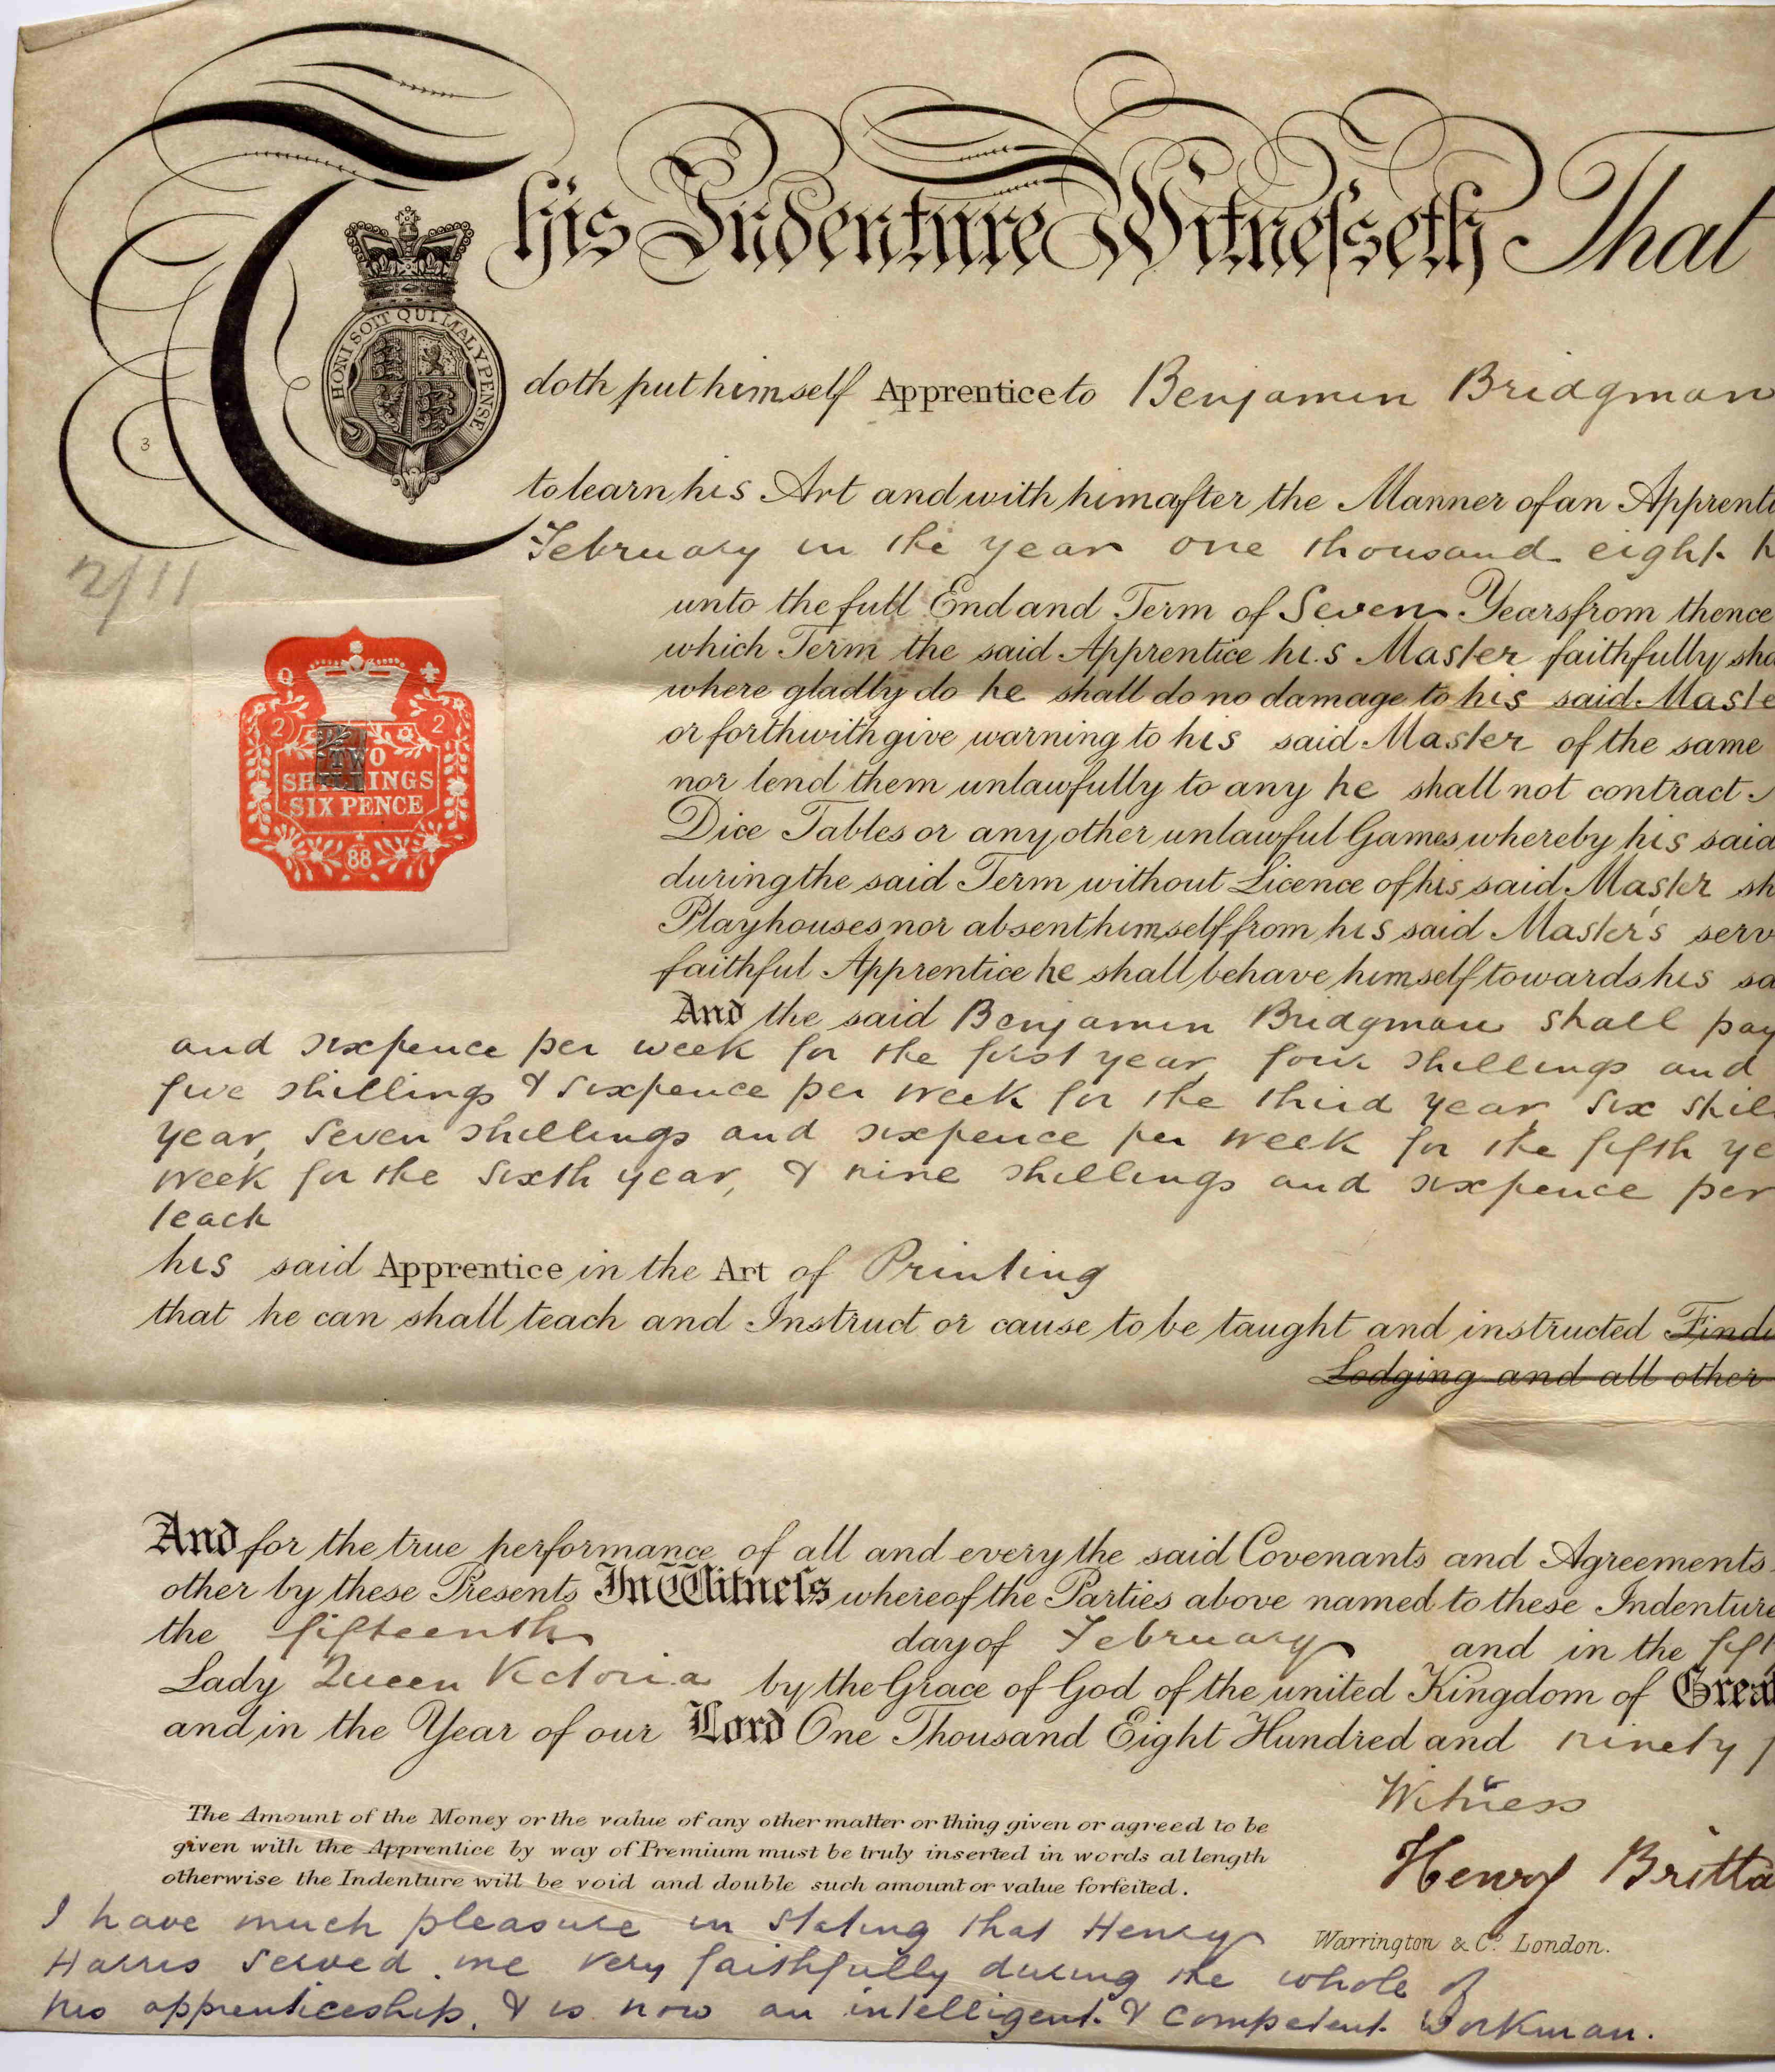 This Indenture Witnesseth That
HONI SOIT QUI MAL Y PENSE
doth put himself Apprentice to Benjamin Bridgman
3
to learn his Art and with him after the Manner of an Apprenti
February in the year one thousand eight h
2/11
unto the full End and Term of Seven Years from thence
which Term the said Apprentice his Master faithfully sha
where gladly do he shall do no damage to his said Maste
or forthwith give warning to his said Master of the same
nor lend them unlawfully to any he shall not contract
Dice Tables or any other unlawful Games whereby his said
during the said Term without Licence of his said Master sh
Playhouses nor absent himself from his said Master's serv
faithful Apprentice he shall behave himself towards his sa
Q
2 2
TWO
SHILLINGS
SIX PENCE
88
And the said Benjamin Bridgman shall pay
and sixpence per week for the first year, four shillings and
five shillings & sixpence per week for the third year, six shil
year, seven shillings and sixpence per week for the fifth ye
week for the sixth year, & nine shillings and sixpence per
teach
his said Apprentice in the Art of Printing
that he can shall teach and Instruct or cause to be taught and instructed Findi
Lodging and all other
And for the true performance of all and every the said Covenants and Agreements
other by these Presents In Witness whereof the Parties above named to these Indenture
the fifteenth day of February and in the fift
Lady Queen Victoria by the Grace of God of the united Kingdom of Great
and in the Year of our Lord One Thousand Eight Hundred and ninety f
Witness
The Amount of the Money or the value of any other matter or thing given or agreed to be
given with the Apprentice by way of Premium must be truly inserted in words at length
otherwise the Indenture will be void and double such amount or value forfeited.
Henry Britta
Warrington & Co. London.
I have much pleasure in stating that Henry
Harris served me very faithfully during the whole of
his apprenticeship, & is now an intelligent & competent workman.